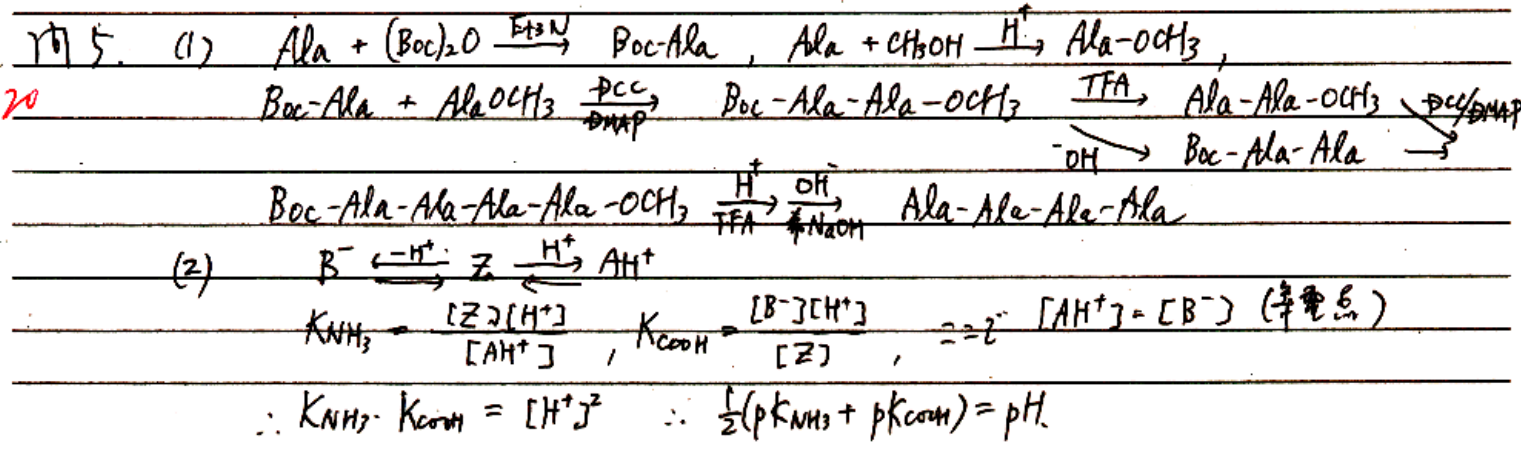 问5. (1) Ala + (Boc)₂O —Et₃N→ Boc-Ala , Ala + CH₃OH —H⁺→ Ala-OCH₃,
20 Boc-Ala + AlaOCH₃ —DCC/DMAP→ Boc-Ala-Ala-OCH₃ —TFA→ Ala-Ala-OCH₃ ↘ DCC/DMAP
⁻OH ↘ Boc-Ala-Ala →
Boc-Ala-Ala-Ala-Ala-OCH₃ —H⁺/TFA→ —OH⁻/NaOH→ Ala-Ala-Ala-Ala
(2) B⁻ ⇌(-H⁺) Z ⇌(H⁺) AH⁺
K_NH₃ = [Z][H⁺]/[AH⁺] , K_COOH = [B⁻][H⁺]/[Z] , ここで [AH⁺] = [B⁻] (等電点)
∴ K_NH₃· K_COOH = [H⁺]² ∴ ½(pK_NH₃ + pK_COOH) = pH.